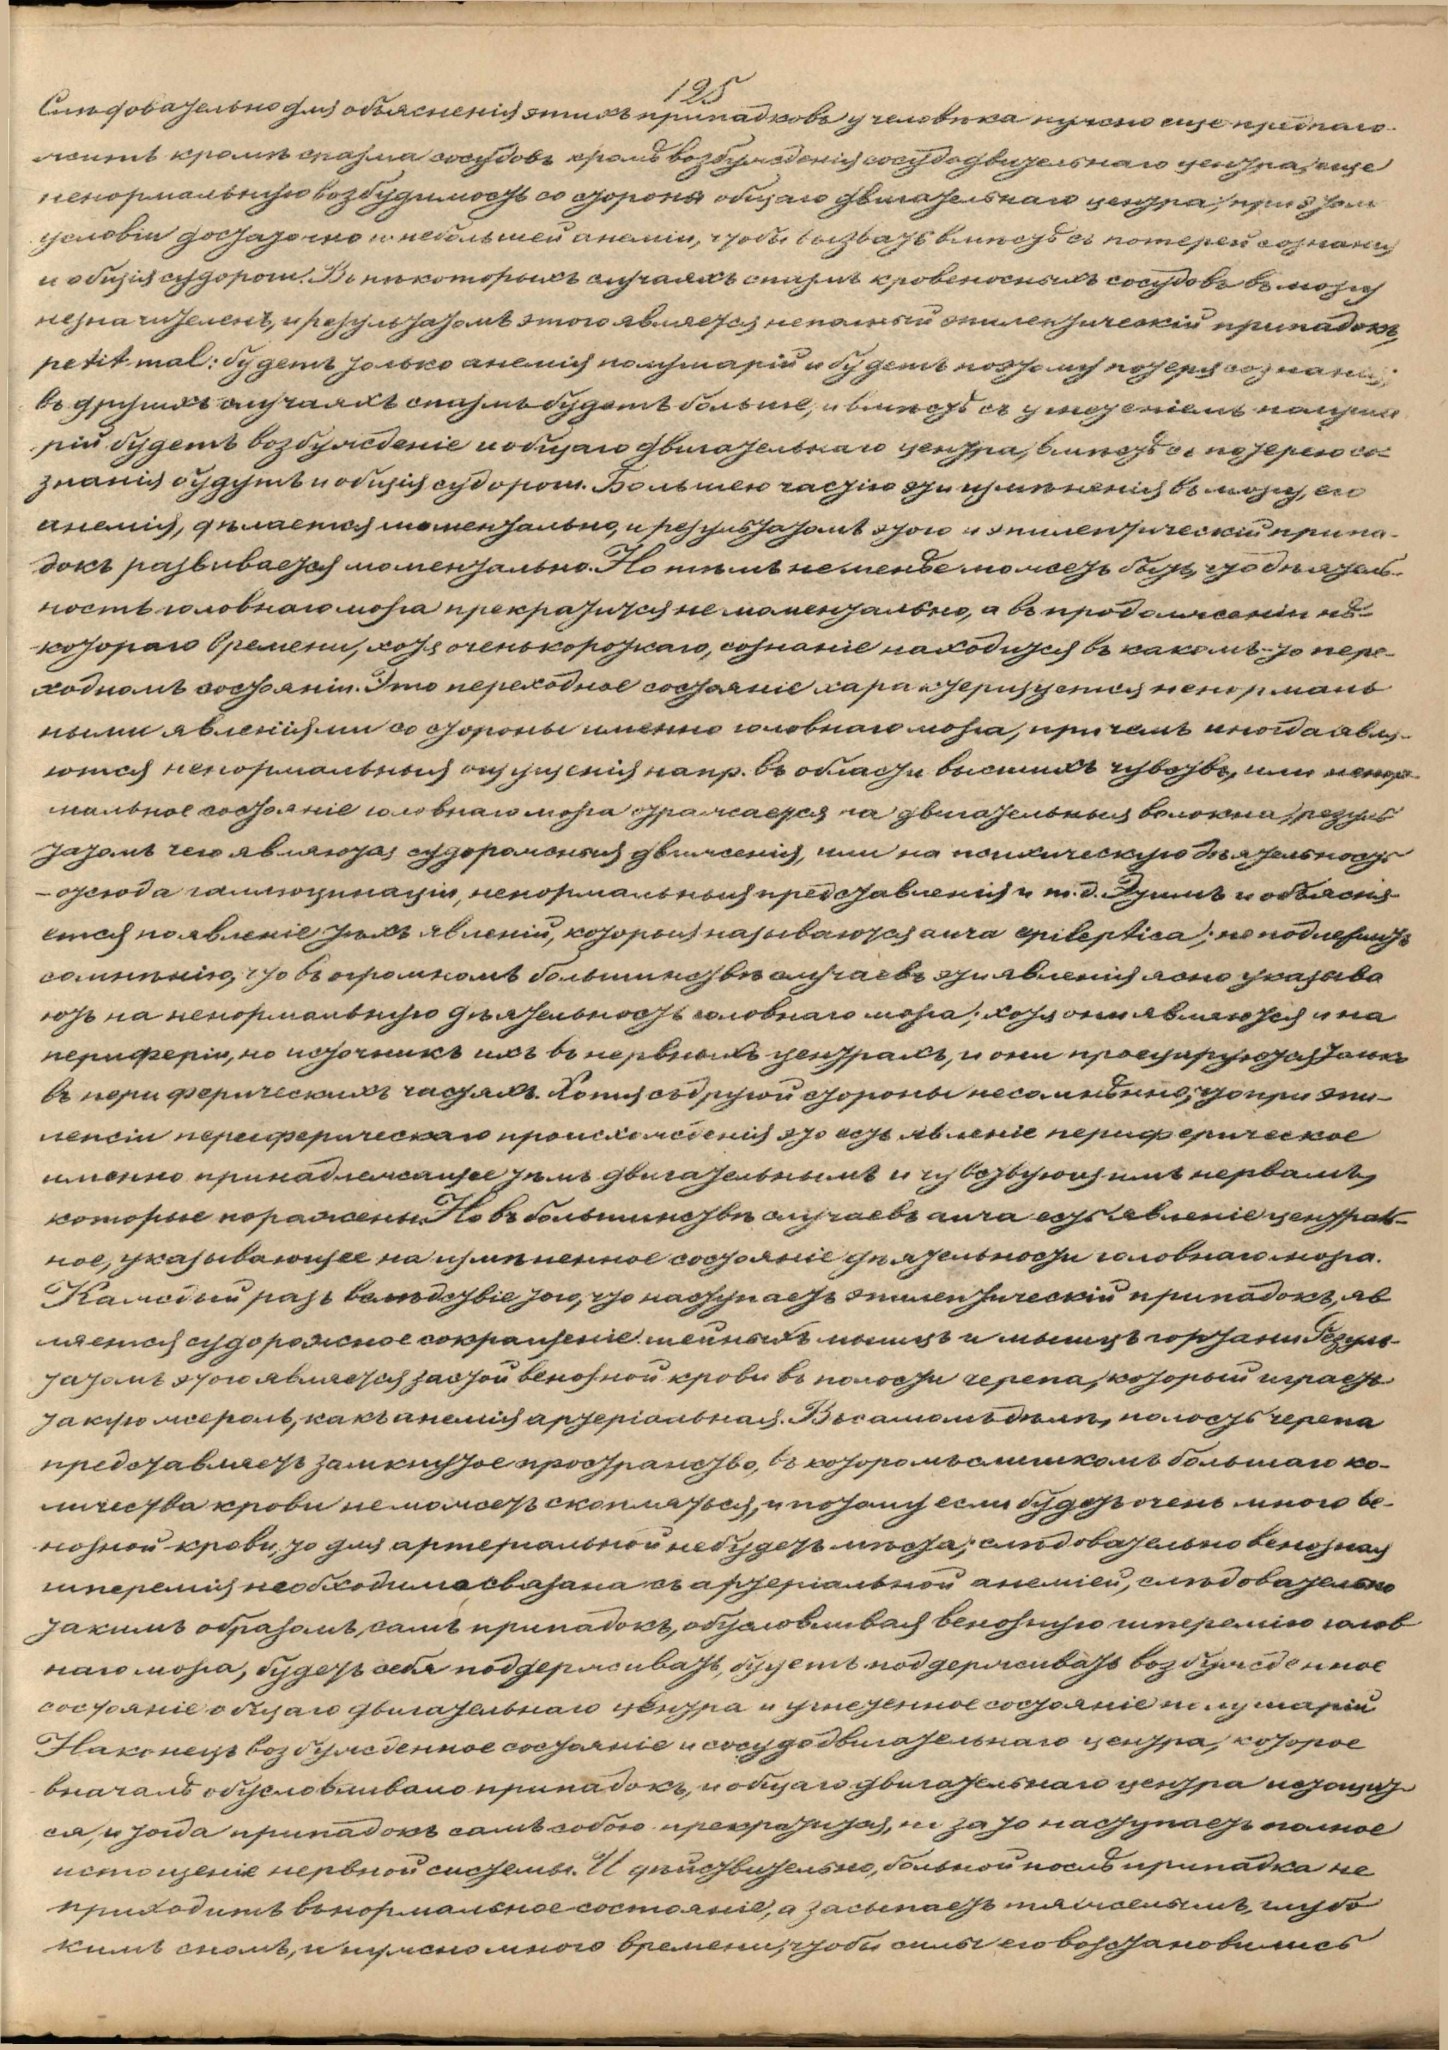 125
Слѣдовательно для объясненія этихъ припадковъ у человѣка нужно еще предполо-
жить кромѣ спазма сосудовъ кромѣ возбужденія сосудодвигельнаго центра, еще
ненормальную возбудимость со стороны общаго двигательнаго центра, при этом
условіи достаточно и небольшей анеміи, чтобы вызвать вмѣстѣ съ потерей сознанія
и общія судороги. Въ нѣкоторыхъ случаяхъ спазмъ кровеносныхъ сосудовъ въ мозгу
незначителенъ, и результатомъ этого является неполный эпилептическій припадокъ,
petit mal: будетъ только анемія полушарій и будетъ поэтому потеря сознанія;
въ другихъ случаяхъ спазмъ будетъ больше, и вмѣстѣ съ угнетеніемъ полуша
рій будетъ возбужденіе и общаго двигательнаго центра, вмѣстѣ съ потерею со-
знанія будутъ и общія судороги. Большею частію эти измѣненія въ мозгу, его
анемія, дѣлается моментально, и результатомъ этого и эпилептическій припа-
докъ развивается моментально. Но тѣмъ неменѣе можетъ быть, что дѣятель-
ность головнаго мозга прекратится не моментально, а въ продолженіи нѣ-
котораго времени, хотя очень короткаго, сознаніе находится въ какомъ-то пере-
ходномъ состояніи. Это переходное состояніе характеризуется ненормаль
ными явленіями со стороны именно головнаго мозга, причемъ иногда явля-
ются ненормальныя ощущенія напр. въ области высшихъ чувствъ, или ненор-
мальное состояніе головнаго мозга отражается на двигательныя волокна, резуль
татомъ чего являются судорожныя движенія, или на психическую дѣятельность
- отсюда галлюцинаціи, ненормальныя представленія и т.д. Этимъ и объясня-
ется появленіе тѣхъ явленій, которыя называются aura epileptica; не подлежитъ
сомнѣнію, что въ огромномъ большинствѣ случаевъ эти явленія ясно указыва
ютъ на ненормальную дѣятельность головнаго мозга; хотя они являются и на
периферіи, но источникъ ихъ въ нервныхъ центрахъ, и они проецируются только
въ периферическихъ частяхъ. Хотя съ другой стороны несомнѣнно, что при эпи-
лепсіи переферическаго происхожденія это есть явленіе периферическое
именно принадлежащее тѣмъ двигательнымъ и чувствующимъ нервамъ,
которые поражены. Но въ большинствѣ случаевъ aura есть явленіе централь-
ное, указывающее на измѣненное состояніе дѣятельности головнаго мозга.
Каждый разъ вслѣдствіе того, что наступаетъ эпилептическій припадокъ, яв
ляется судорожное сокращеніе шейныхъ мышцъ и мышцъ гортани. Резуль-
татомъ этого является застой венозной крови въ полости черепа, который играетъ
такую же роль, какъ анемія артеріальная. Въ самомъ дѣлѣ, полость черепа
представляетъ замкнутое пространство, въ которомъ слишкомъ большаго ко-
личества крови не можетъ скопляться, и потому если будетъ очень много ве-
нозной крови, то для артериальной небудетъ мѣста; слѣдовательно венозная
гиперемія необходимо связана съ артеріальной анеміей, слѣдовательно
такимъ образомъ, самъ припадокъ, обусловливая венозную гиперемію голов
наго мозга, будетъ себя поддерживать, будетъ поддерживать возбужденное
состояніе общаго двигательнаго центра и угнетенное состояніе полушарій
Наконецъ возбужденное состояніе и сосудодвигательнаго центра, которое
вначалѣ обусловливало припадокъ, и общаго двигательнаго центра истощит-
ся, и тогда припадокъ самъ собою прекратится, но за то наступаетъ полное
истощеніе нервной системы. И дѣйствительно, больной послѣ припадка не
приходитъ въ нормальное состояніе, а засыпаетъ тяжелымъ, глубо
кимъ сномъ, и нужно много времени, чтобы силы его возстановились